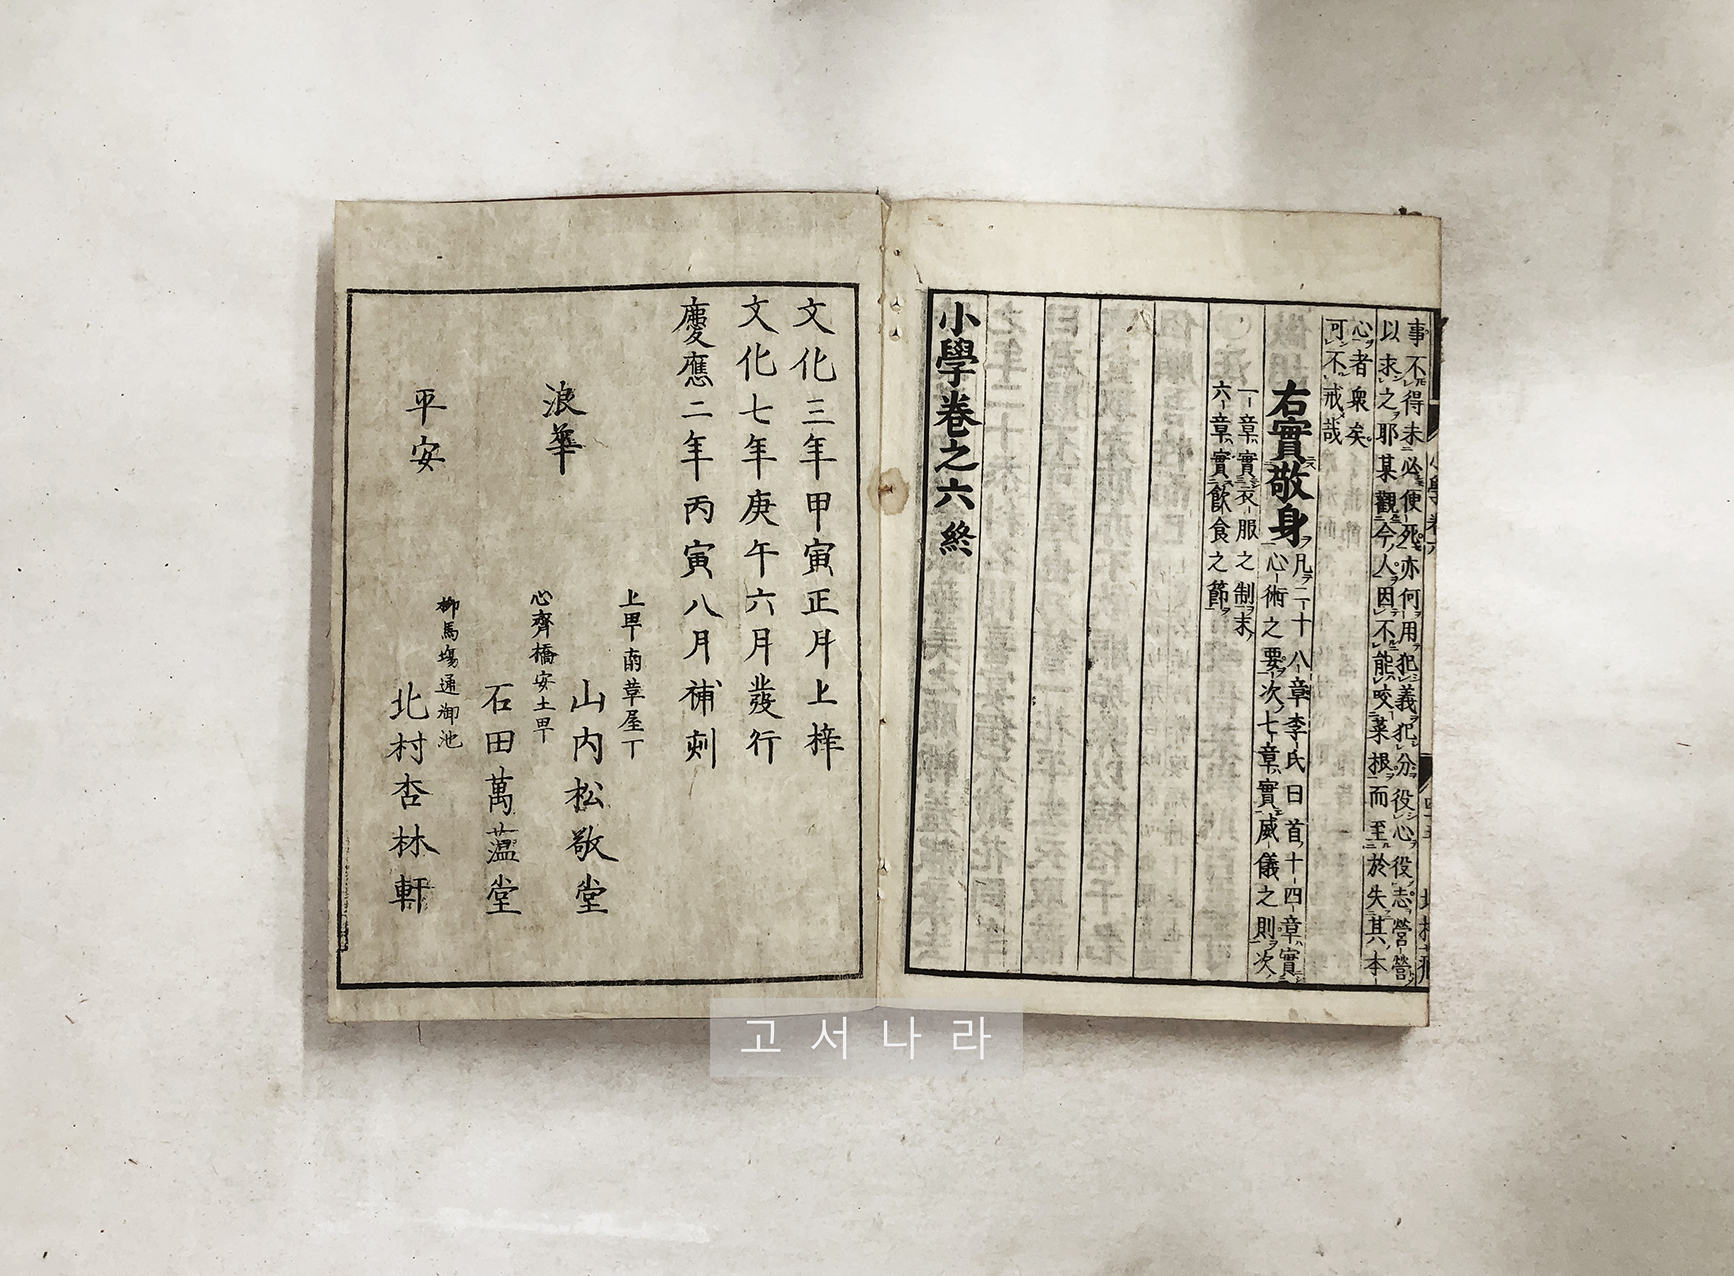 事不得未必便死亦何用犯義犯分役心役志營營
以求之耶某觀今人因不能咬菜根而至於失其本
心者衆矣
可不戒哉
右實敬身
凡二十八章李氏曰首十四章實
心術之要次七章實威儀之則次
一章實衣服之制末
六章實飲食之節
小學卷之六終
文化三年甲寅正月上梓
文化七年庚午六月發行
慶應二年丙寅八月補刻
浪華
心齊橋安土甼
山内松敬堂
石田萬薀堂
平安
柳馬塲通御池
北村杏林軒
고서나라